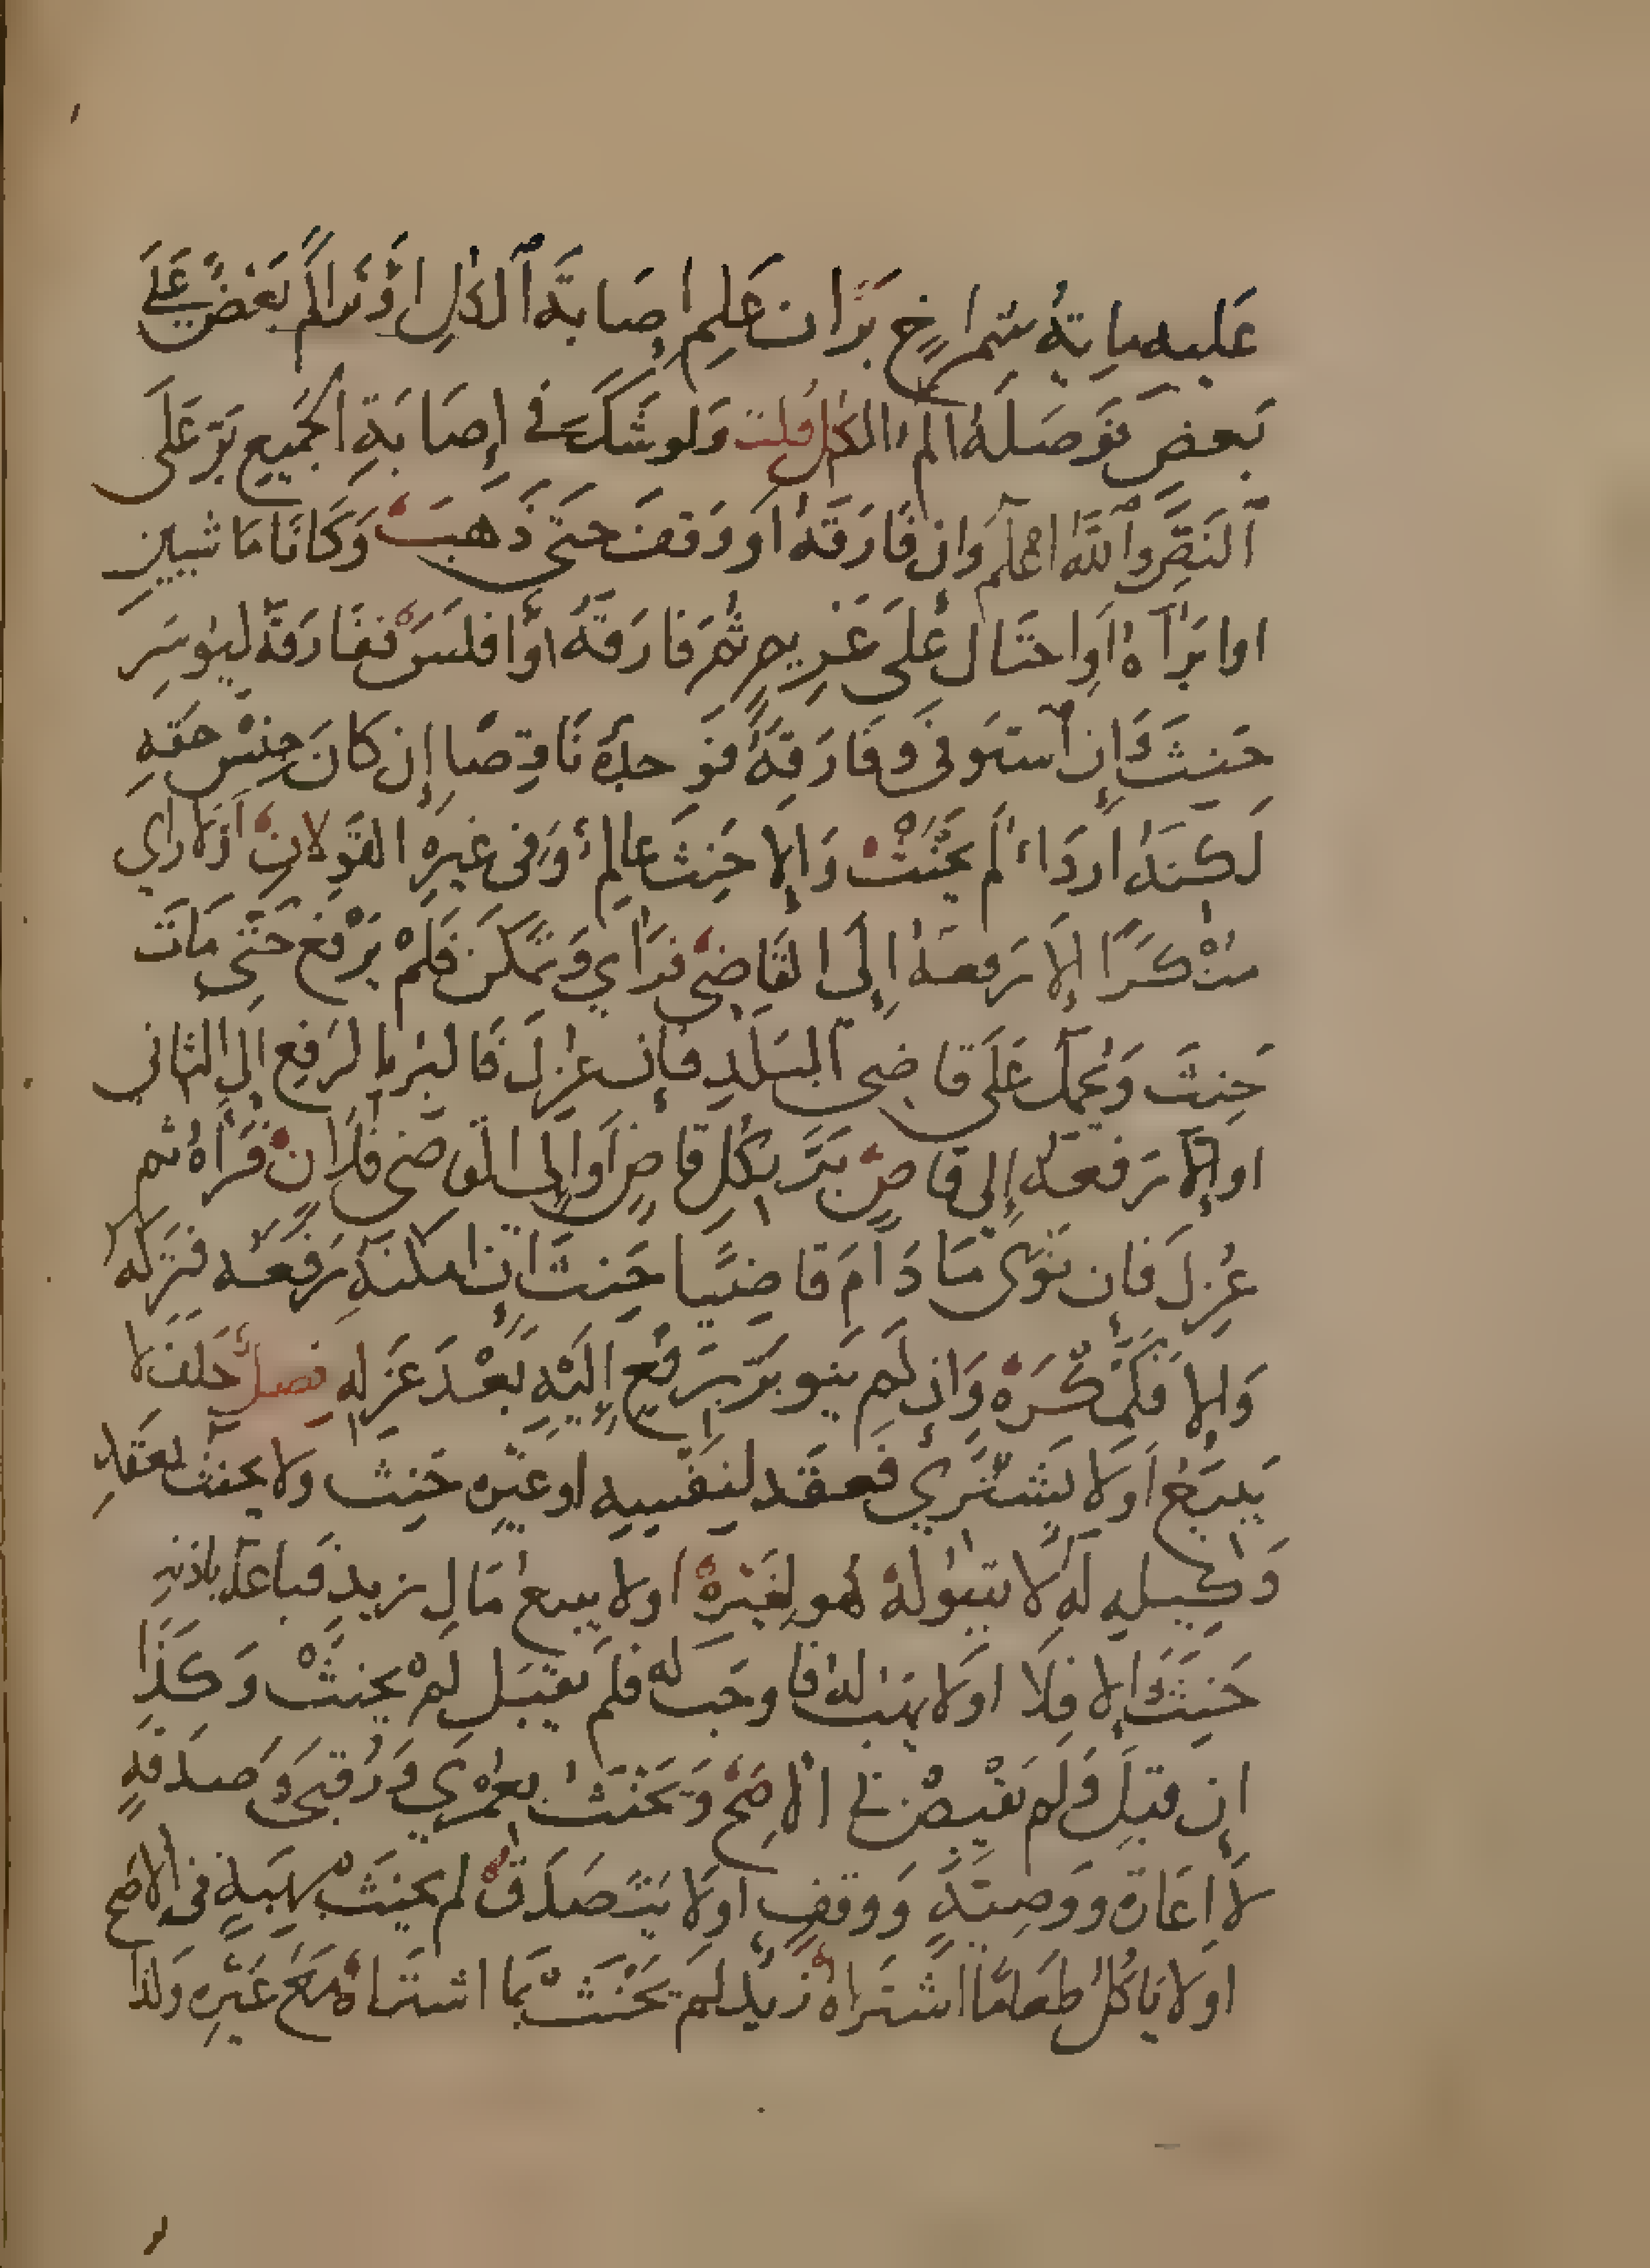 عليه ماية شمراخ برّ ان علم إصابة الكل او تراكم بعض على
بعض فوصله الم الكل قلت ولو شك في إصابة الجميع برّ على
النص والله اعلم وان فارقه او وقف حتى ذهب وكانا ماشيين
او ابراه او احتال على غريم ثم فارقه او افلس ففارقه ليوسر
حنث وإن استوفى وفارقه فوجده ناقصا إن كان جنس حقه
لكنه اردا لم يحنث وإلا حنث عالم وفي غيره القولان او لا راي
منكرا إلا رفعه إلى القاضي فراي وتمكن فلم يرفع حتى مات
حنث ويحمل على قاضي البلد فإن عزل فالبر بالرفع الى الثاني
او إلا رفعه إلى قاض برّ بكل قاض او إلى القاضي فلان فرأه ثم
عزل فان نوى ما دام قاضيا حنث ان امكنه رفعه فتركه
وإلا فكمكره وإن لم ينو برّ برفع إليه بعد عزله فصل حلف لا
يبيع او لا يشتري فعقد لنفسه او غيره حنث ولا يحنث بعقد
وكيله له لا يتولاه هو لغيره او لا يبيع مال زيد فباعه باذنه
حنث وإلا فلا او لا يهب له فاوجب له فلم يقبل لم يحنث وكذا
إن قبل ولم يقبض في الاصح ويحنث بعمري ورقبى وصدقة
لا اعارة ووصية ووقف او لا يتصدق لم يحنث بهبة في الاصح
او لا ياكل طعاما اشتراه زيد لم يحنث بما اشتراه مع غيره ولذا